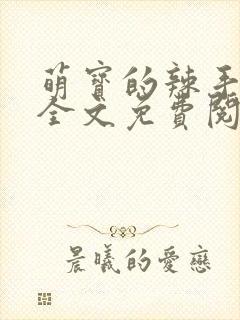 萌寶的辣手
全文免費閱
晨曦的愛戀